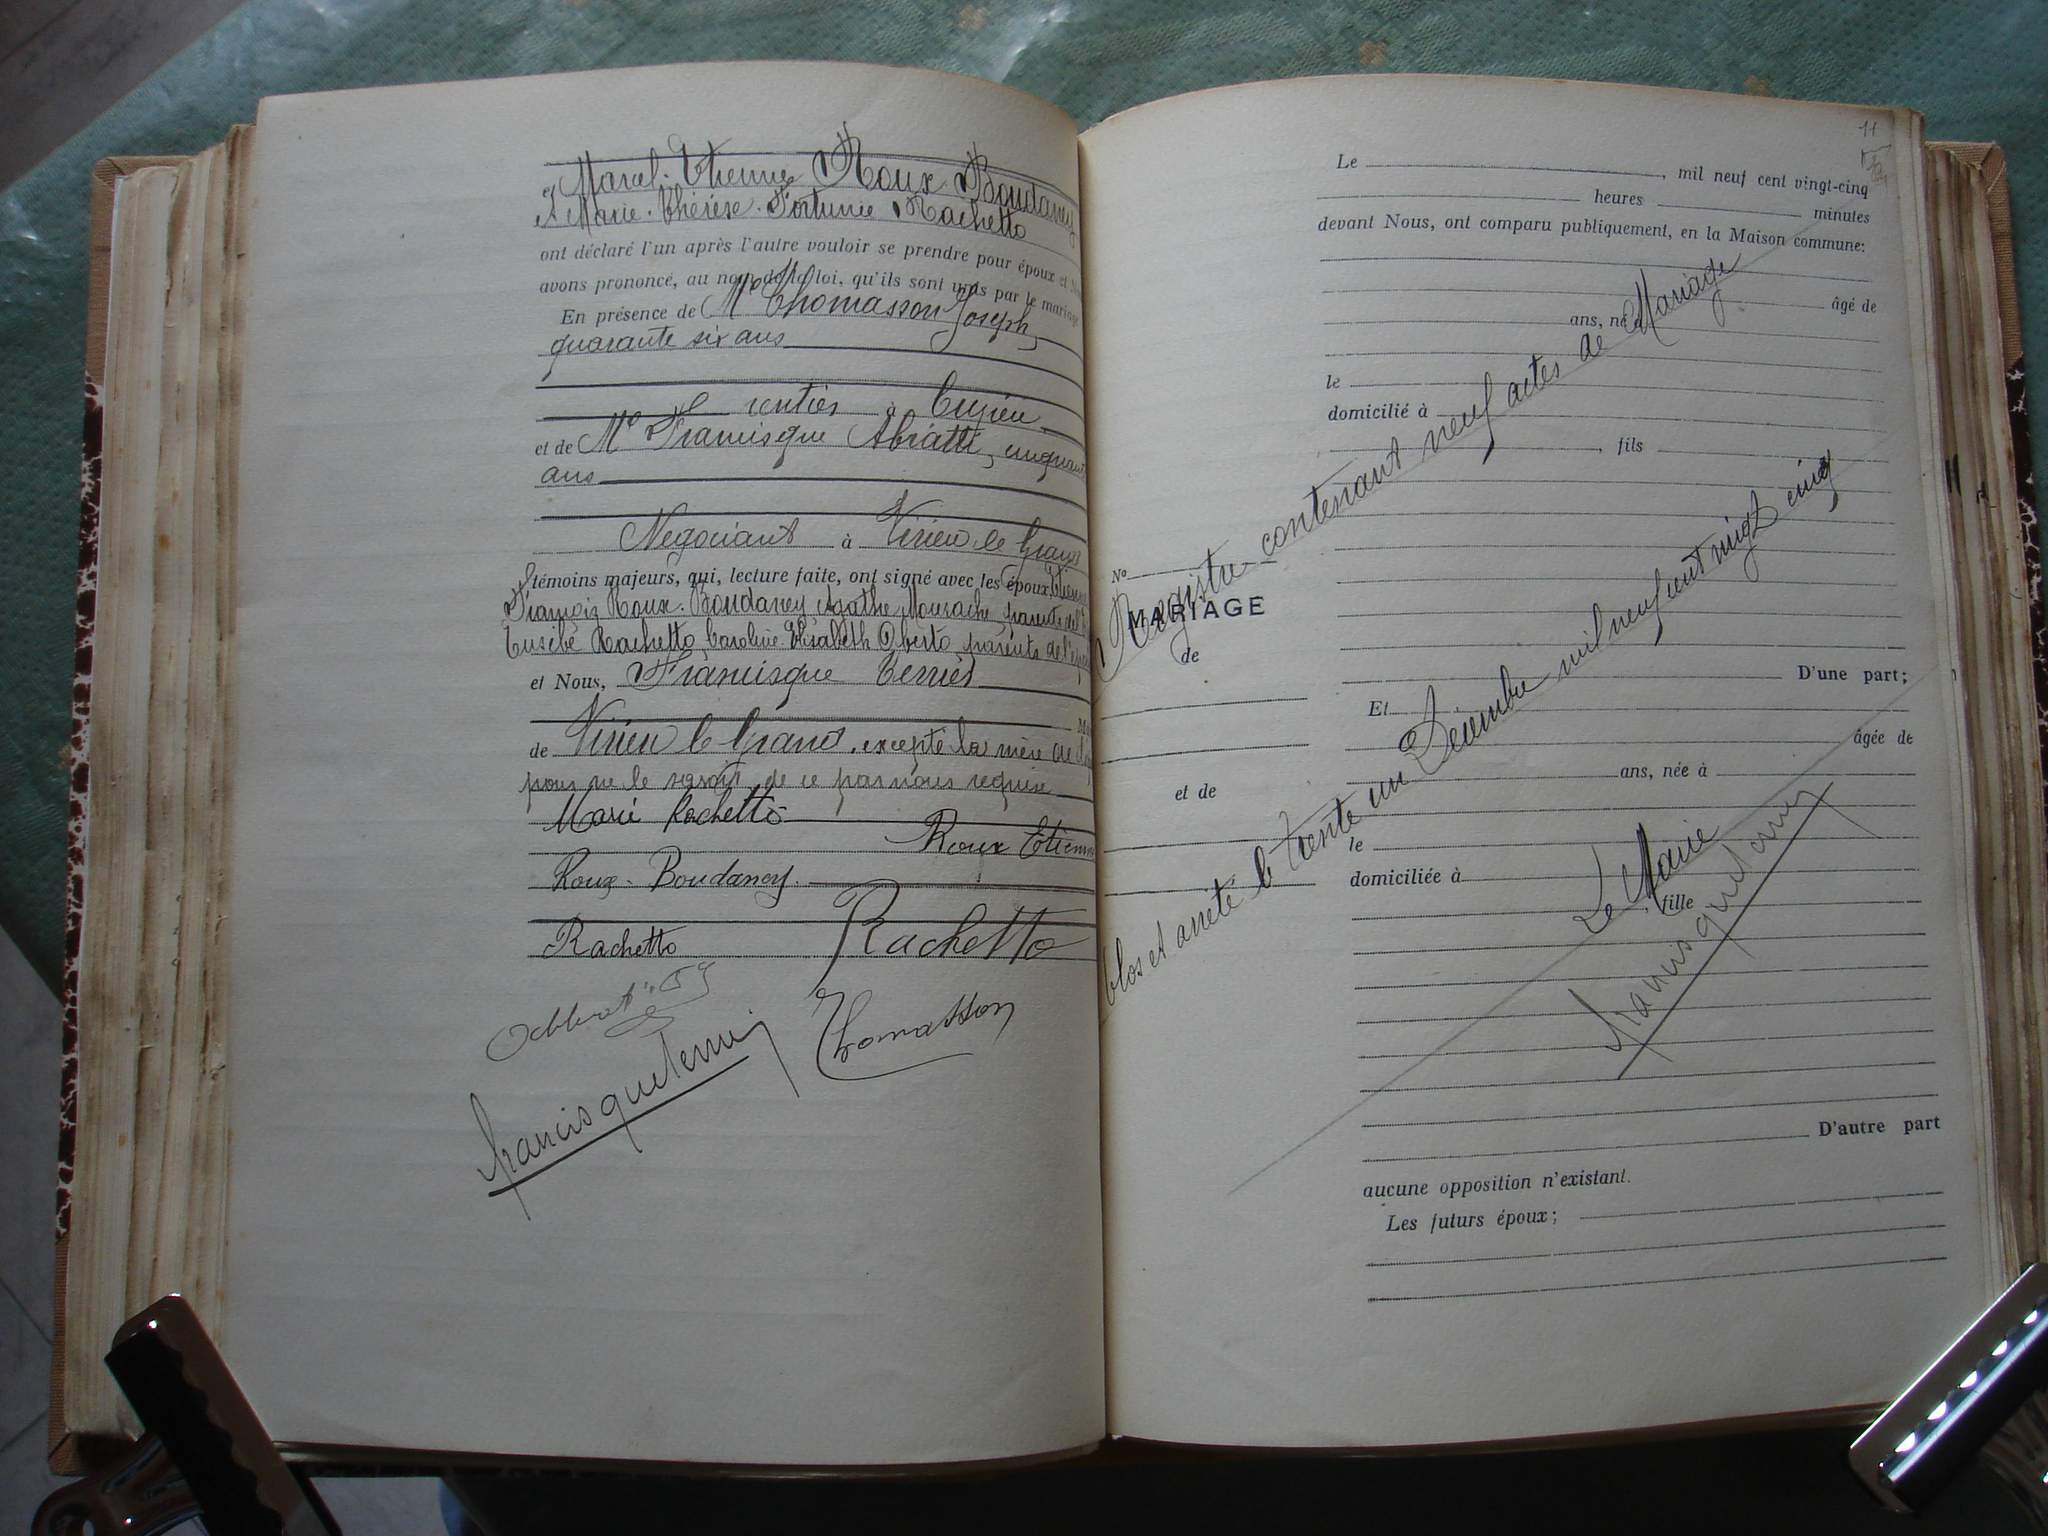 et Marcel. Etienne Roux. Boudaney
et Marie. Thérèse. Fortunée Rachetto
ont déclaré l'un après l'autre vouloir se prendre pour époux et
avons prononcé, au nom de la loi, qu'ils sont unis par le mariage
En présence de Mr Thomasson Joseph,
quarante six ans
rentier à
et de Mr Francisque Abratti, cinquante
ans
Negociant à Virieu le Grand
témoins majeurs, qui, lecture faite, ont signé avec les époux,
François Roux. Boudaney Agathe parents de
Eusèbe Rachetto, Caroline. Elisabeth Oberto, parents de
et Nous, Francisque Terrier
de Virieu le Grand. excepté la mère de
pour ne le savoir de ce par nous requise
Marie Rachetto
Roux Etienne
Roux. Boudaney.
Rachetto
Rachetto
Thomasson
Francisque Terrier
11
Le , mil neuf cent vingt-cinq
heures minutes
devant Nous, ont comparu publiquement, en la Maison commune:
âgé de
ans, né à
le
domicilié à
, fils
No
MARIAGE
de
et de
D'une part;
Et
âgée de
ans, née à
le
domiciliée à
, fille
D'autre part
aucune opposition n'existant.
Les futurs époux;
Registre contenant neuf actes de Mariage
Clos et arrêté le trente un Décembre mil neuf cent vingt cinq
Le Maire
Francisque Terrier